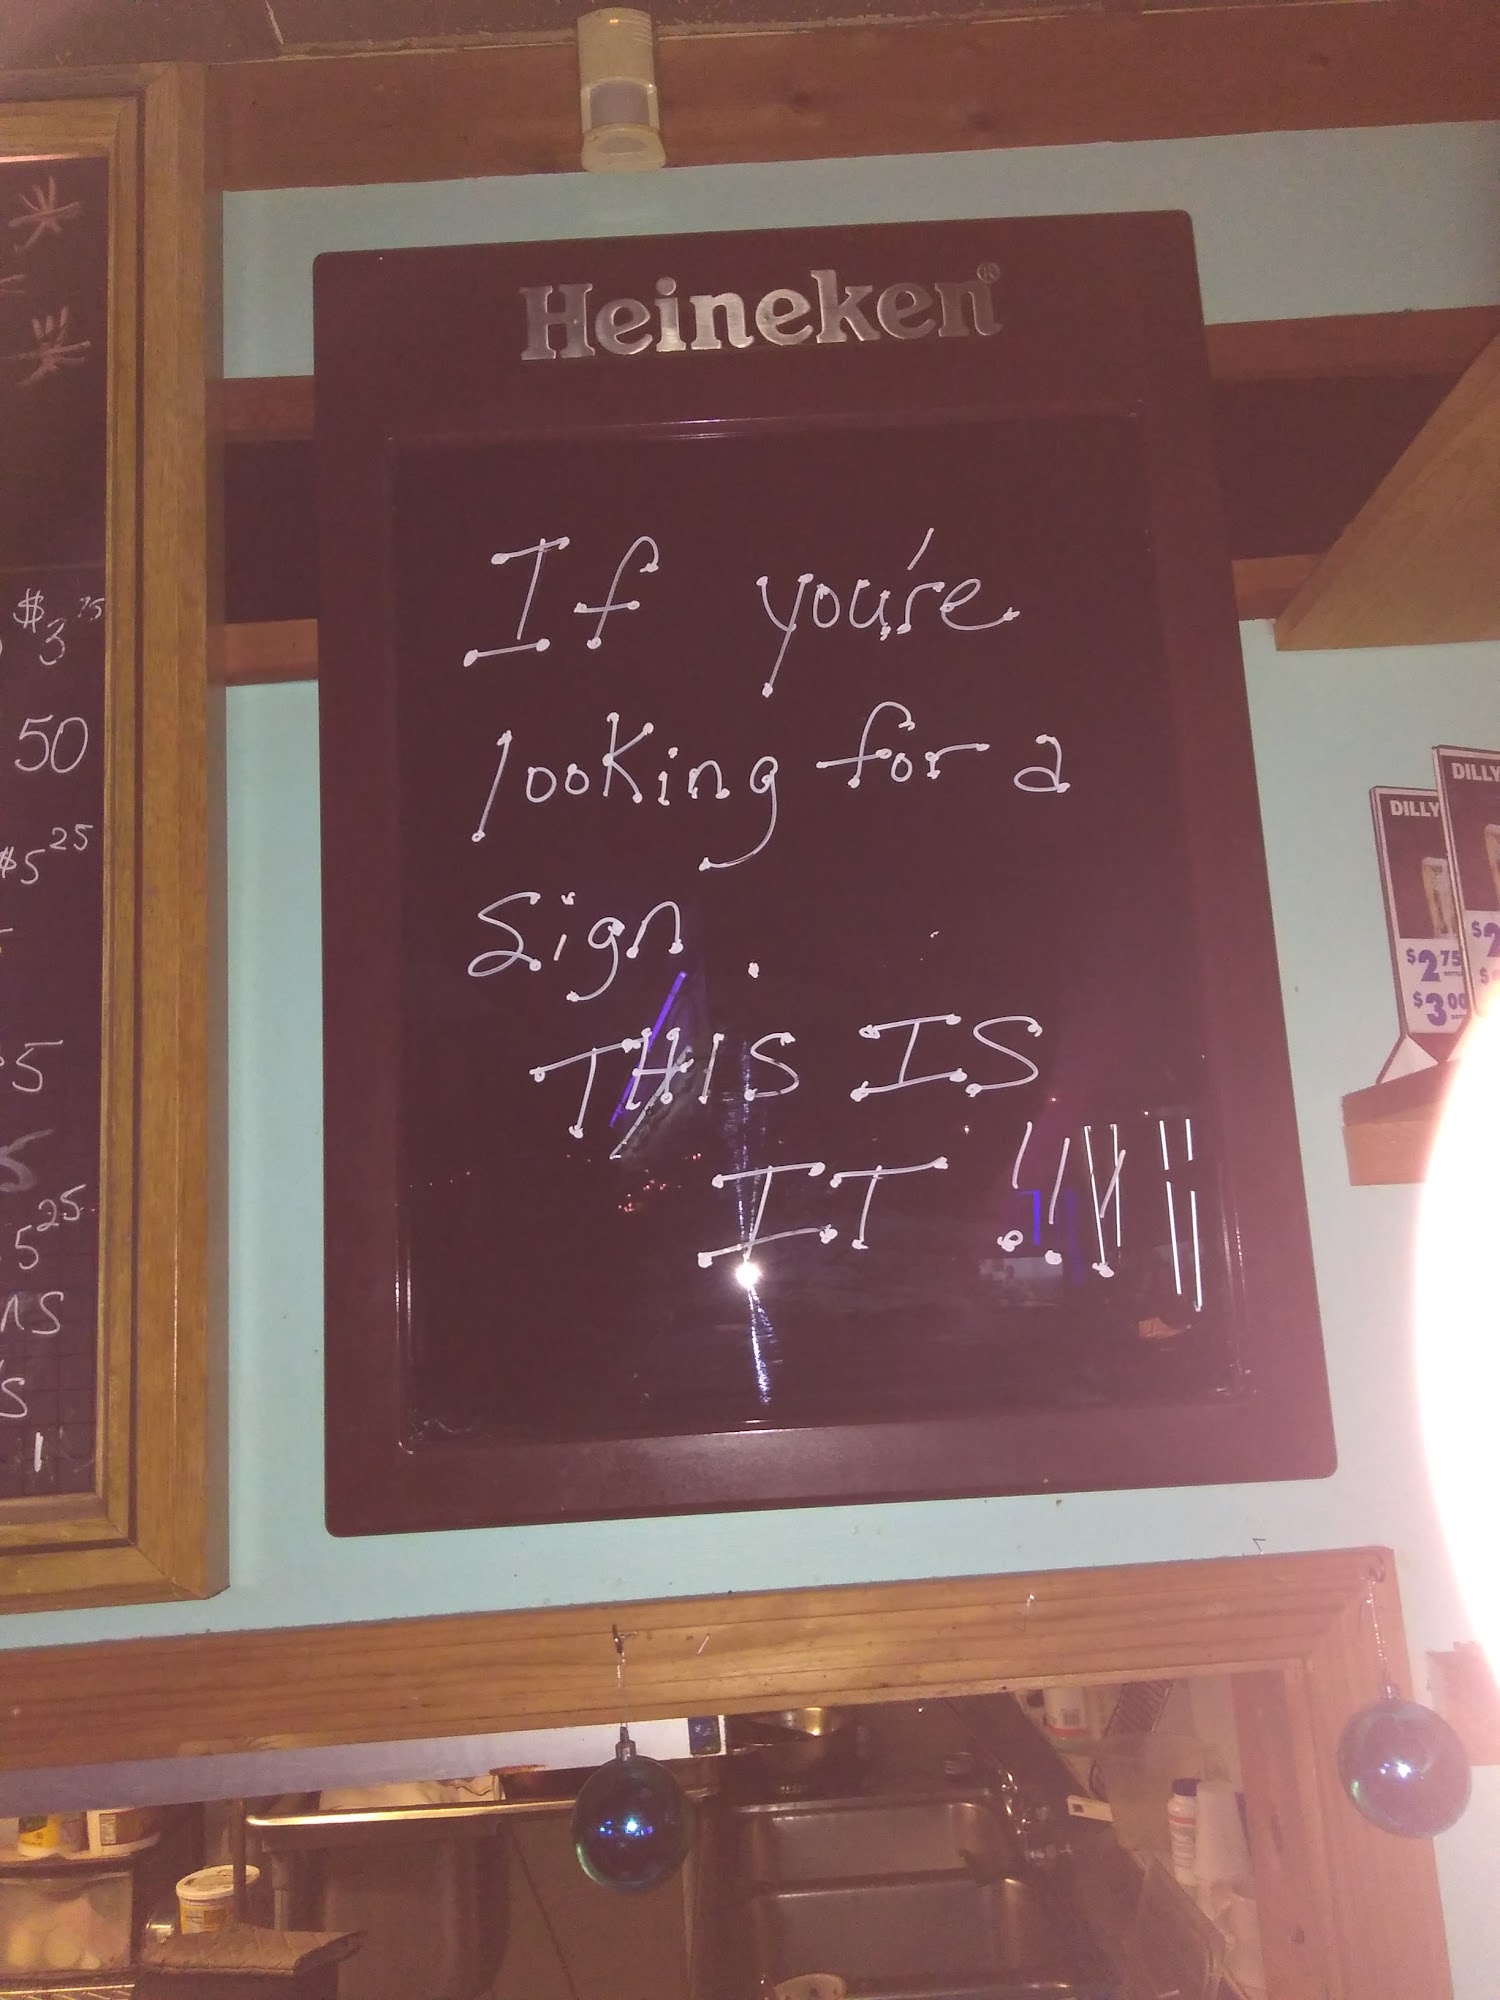 Heineken®
If you're
looking for a
sign .
THIS IS
IT !!!!
$3 75
50
$5 25
5
5
5 25
DILLY
DILLY
$2 75
$3 00
$2
$